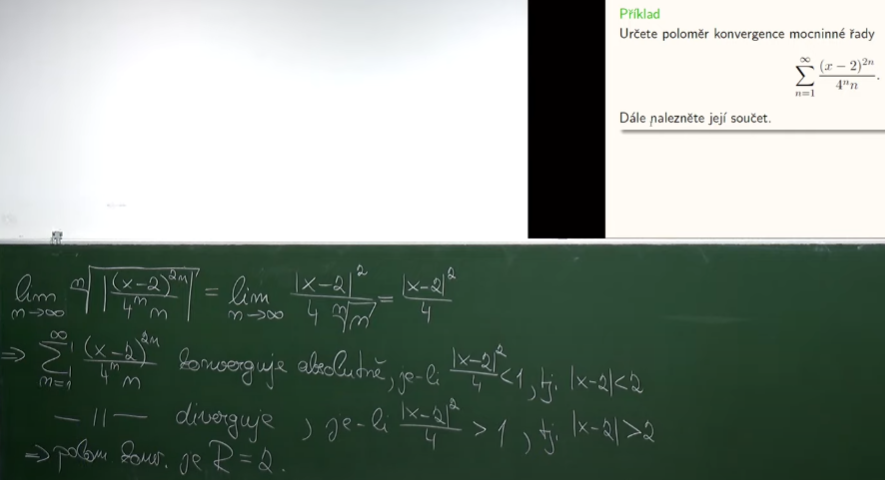 Příklad
Určete poloměr konvergence mocninné řady
∑_{n=1}^{∞} (x − 2)^{2n} / 4^n n .
Dále nalezněte její součet.
lim_{n→∞} ⁿ√|(x−2)^{2n} / 4^n n| = lim_{n→∞} |x−2|² / 4 ⁿ√n = |x−2|² / 4
⇒ ∑_{n=1}^{∞} (x−2)^{2n} / 4^n n konverguje absolutně, je-li |x−2|²/4 < 1, tj. |x−2| < 2
— 11 — diverguje, je-li |x−2|²/4 > 1, tj. |x−2| > 2
⇒ polom konv. je R = 2.